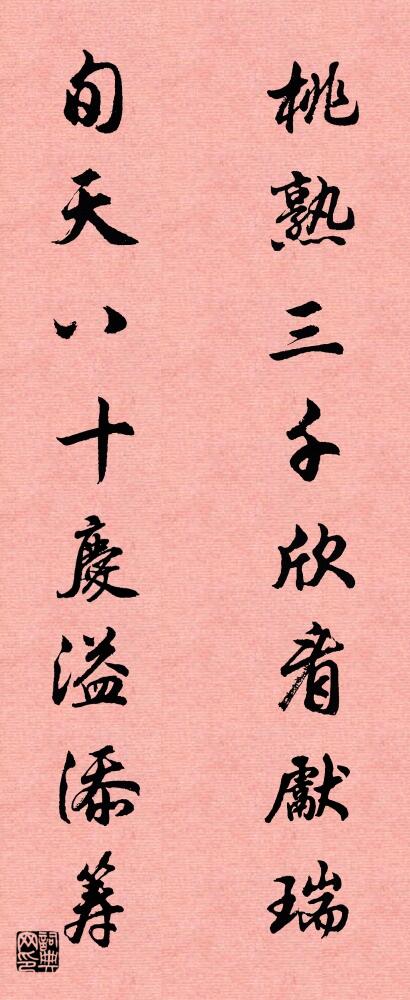 桃熟三千欣看獻瑞
旬天八十慶溢添筹
詞典网印